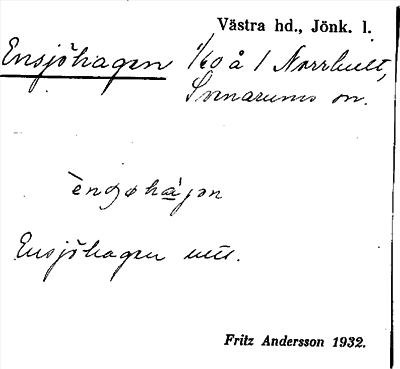 Västra hd., Jönk. l.
Ensjöhagen 1/60 å 1 Norrhult,
Svenarums sn.
ènsøhàgən
Ensjöhagen utt.
Fritz Andersson 1932.